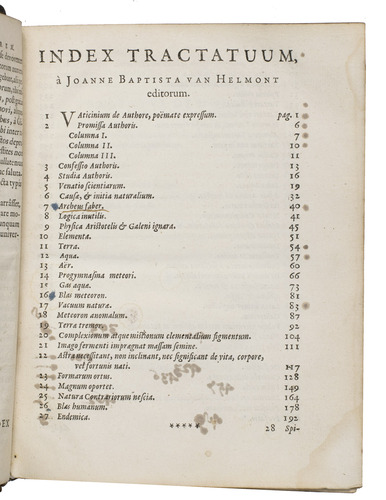 INDEX TRACTATUUM,
à JOANNE BAPTISTA VAN HELMONT
editorum.
1 VAticinium de Authore, poëmate expressum. pag. 1
2 Promissa Authoris. 6
Columna I. 7
Columna II. 10
Columna III. 11
3 Confessio Authoris. 13
4 Studia Authoris. 16
5 Venatio scientiarum. 19
6 Causæ, & initia naturalium. 32
7 Archeus faber. 40
8 Logica inutilis. 41
9 Physica Aristotelis & Galeni ignara. 45
10 Elementa. 51
11 Terra. 54
12 Aqua. 57
13 Aër. 60
14 Progymnasma meteori. 66
15 Gas aquæ. 73
16 Blas meteoron. 81
17 Vacuum naturæ. 83
18 Meteoron anomalum. 87
19 Terra tremor. 92
20 Complexionum atque mistionum elementalium figmentum. 104
21 Imago fermenti impregnat massam semine. 111
22 Astra necessitant, non inclinant, nec significant de vita, corpore,
vel fortunis nati. 117
23 Formarum ortus. 128
24 Magnum oportet. 149
25 Natura Contrariorum nescia. 164
26 Blas humanum. 178
27 Endemica. 192
***** 28 Spi-